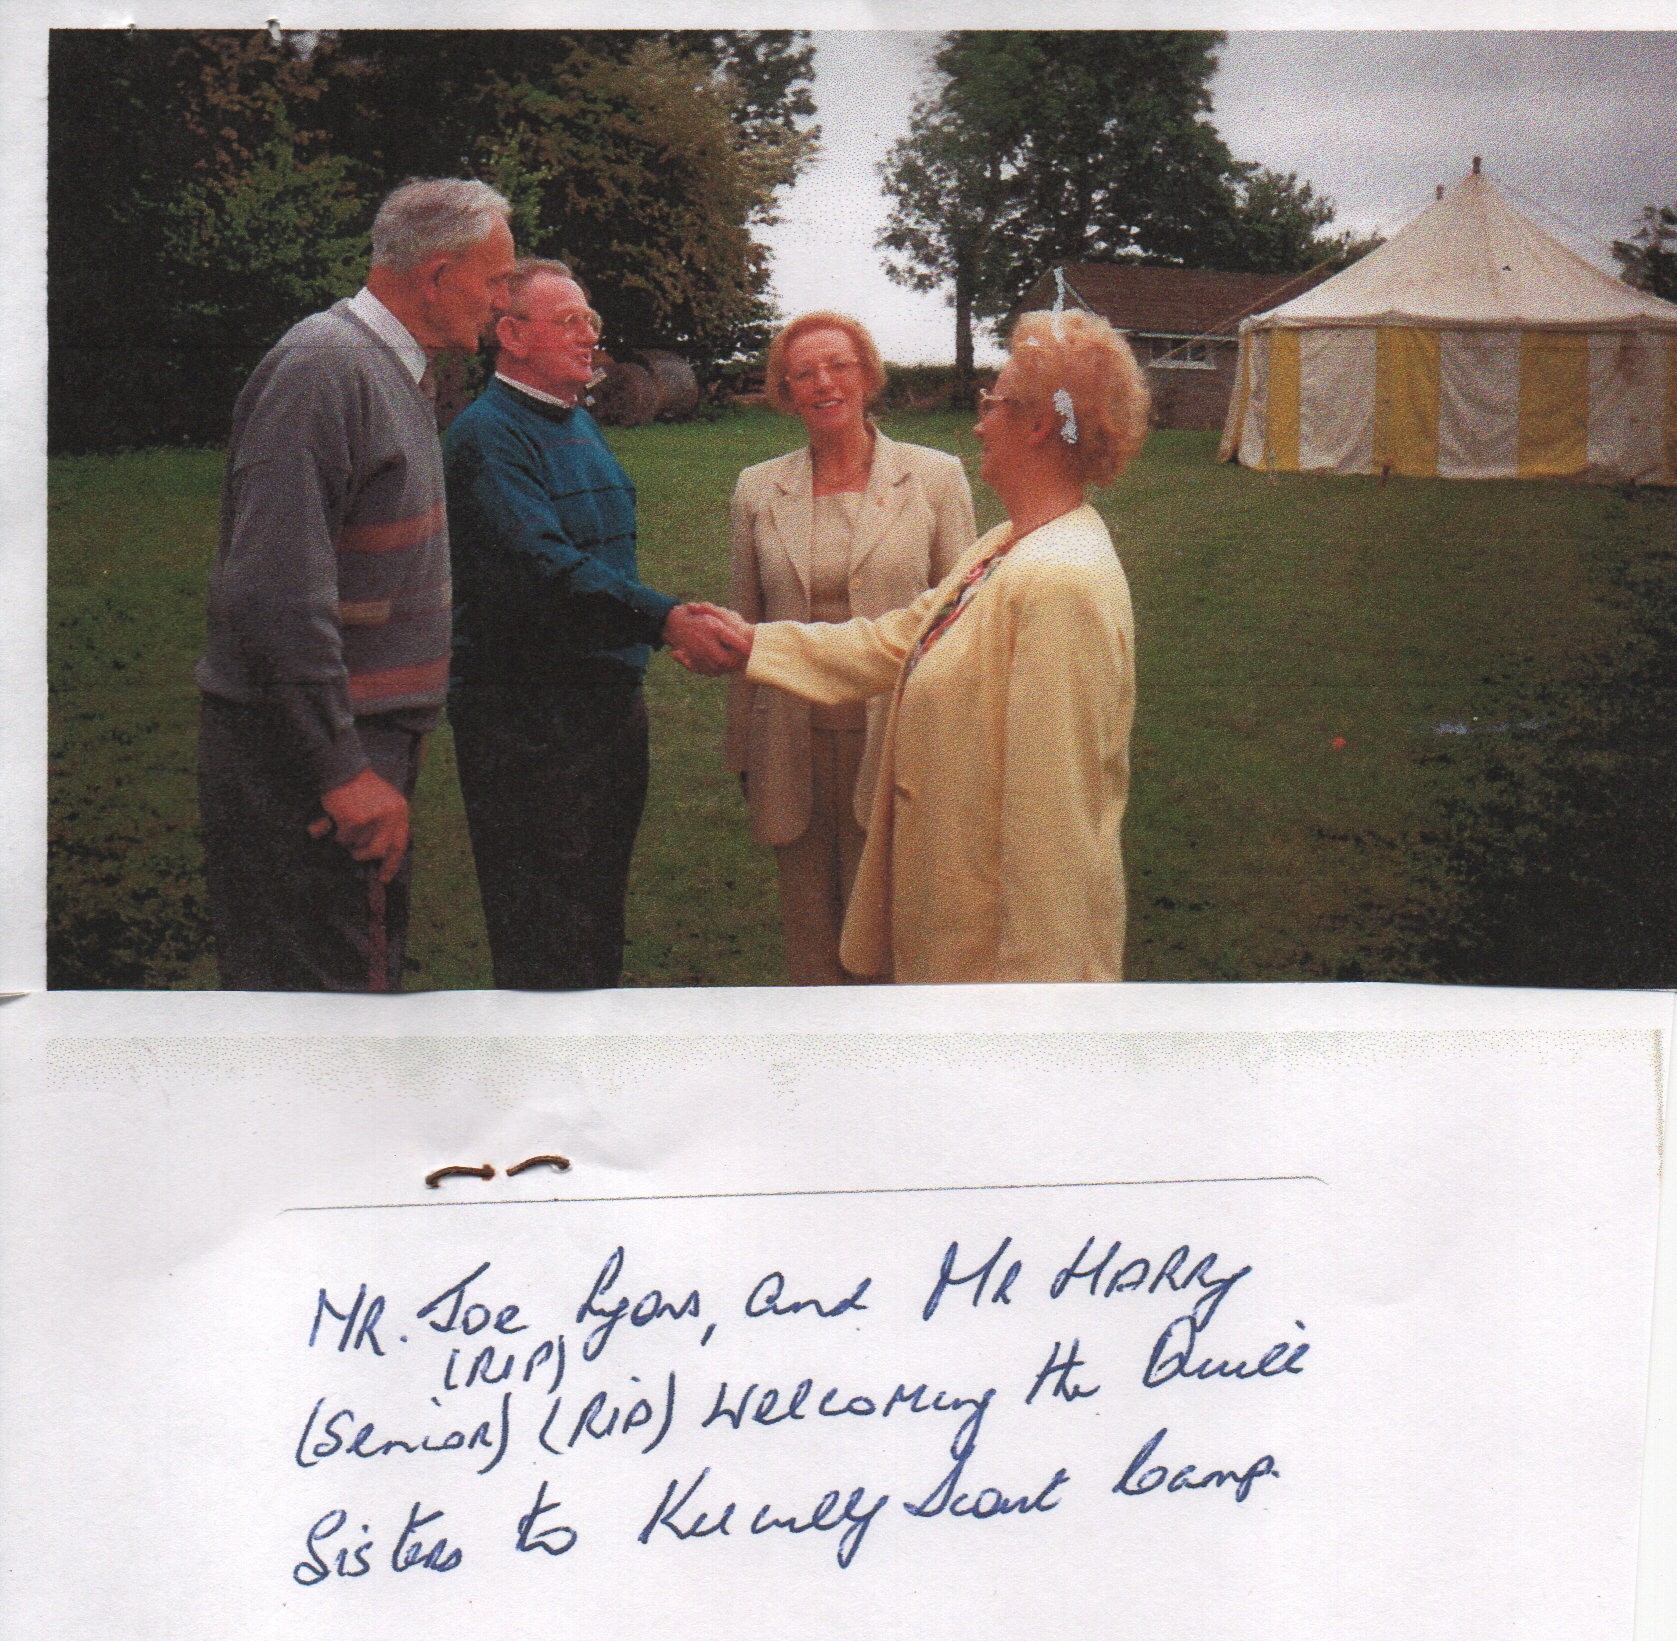 MR. Joe Lyons, and MR HARRy
(RIP)
(Senior) (RIP) Welcoming the Quill
Sisters to Kilcully Scout Camp.